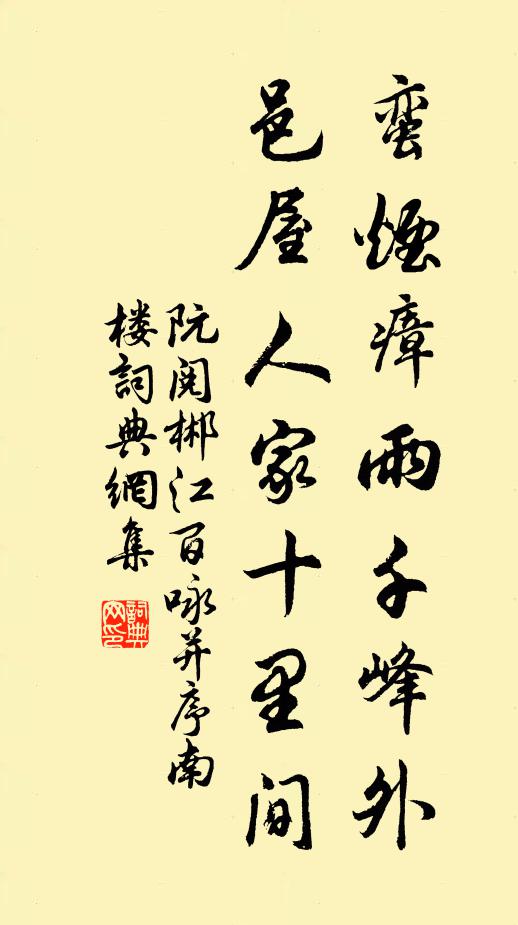 蛮煙瘴雨千峰外
邑屋人家十里間
阮阅郴江百咏并序南
楼詞典網集
詞典网印